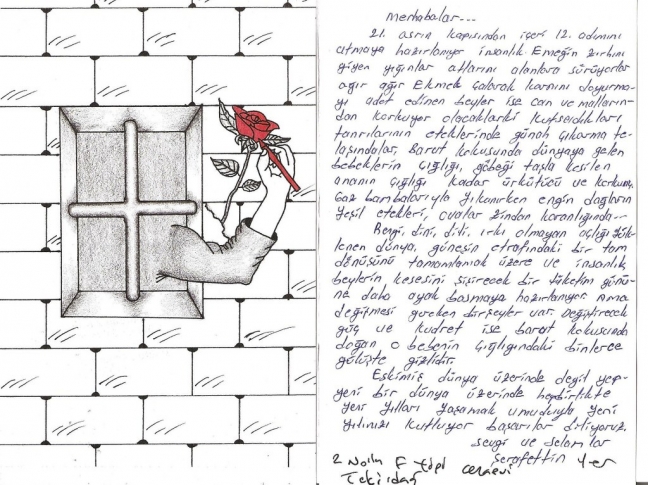 merhabalar...
21. asrın kapısından içeri 12. adımını
atmaya hazırlanıyor insanlık. Emeğin zırhını
giyen yığınlar atlarını alanlara sürüyorlar
ağır ağır Ekmek çalarak karnını doyurma-
yı adet edinen beyler ise can ve malların-
dan korkuyor olacaklarki kutsadıkları
tanrılarının eteklerinde günah çıkarma te-
laşındalar. Barut kokusunda dünyaya gelen
bebeklerin çığlığı, göbeği taşla kesilen
ananın çığlığı kadar ürkütücü ve korkunç
Gaz bombalarıyla yıkanırken engin dağların
yeşil etekleri, ovalar zindan karanlığında...
Rengi, dini, dili, ırkı olmayan açlığı yük-
lenen dünya, güneşin etrafındaki bir tam
dönüşünü tamamlamak üzere ve insanlık
beylerin kesesini şişirecek bir tüketim günü-
ne daha ayak basmaya hazırlanıyor. Ama
değişmesi gereken birşeyler var. Değiştirecek
güç ve kudret ise barut kokusunda
doğan o bebenin çığlığındaki binlerce
gülüşte gizlidir.
Eskimiş dünya üzerinde değil yep-
yeni bir dünya üzerinde hepbirlikte
yeni yılları yaşamak umuduyla yeni
yılınızı kutluyor başarılar diliyoruz.
sevgi ve selamlar
Şerafettin
2 Nolu F tipi cezaevi
Tekirdağ